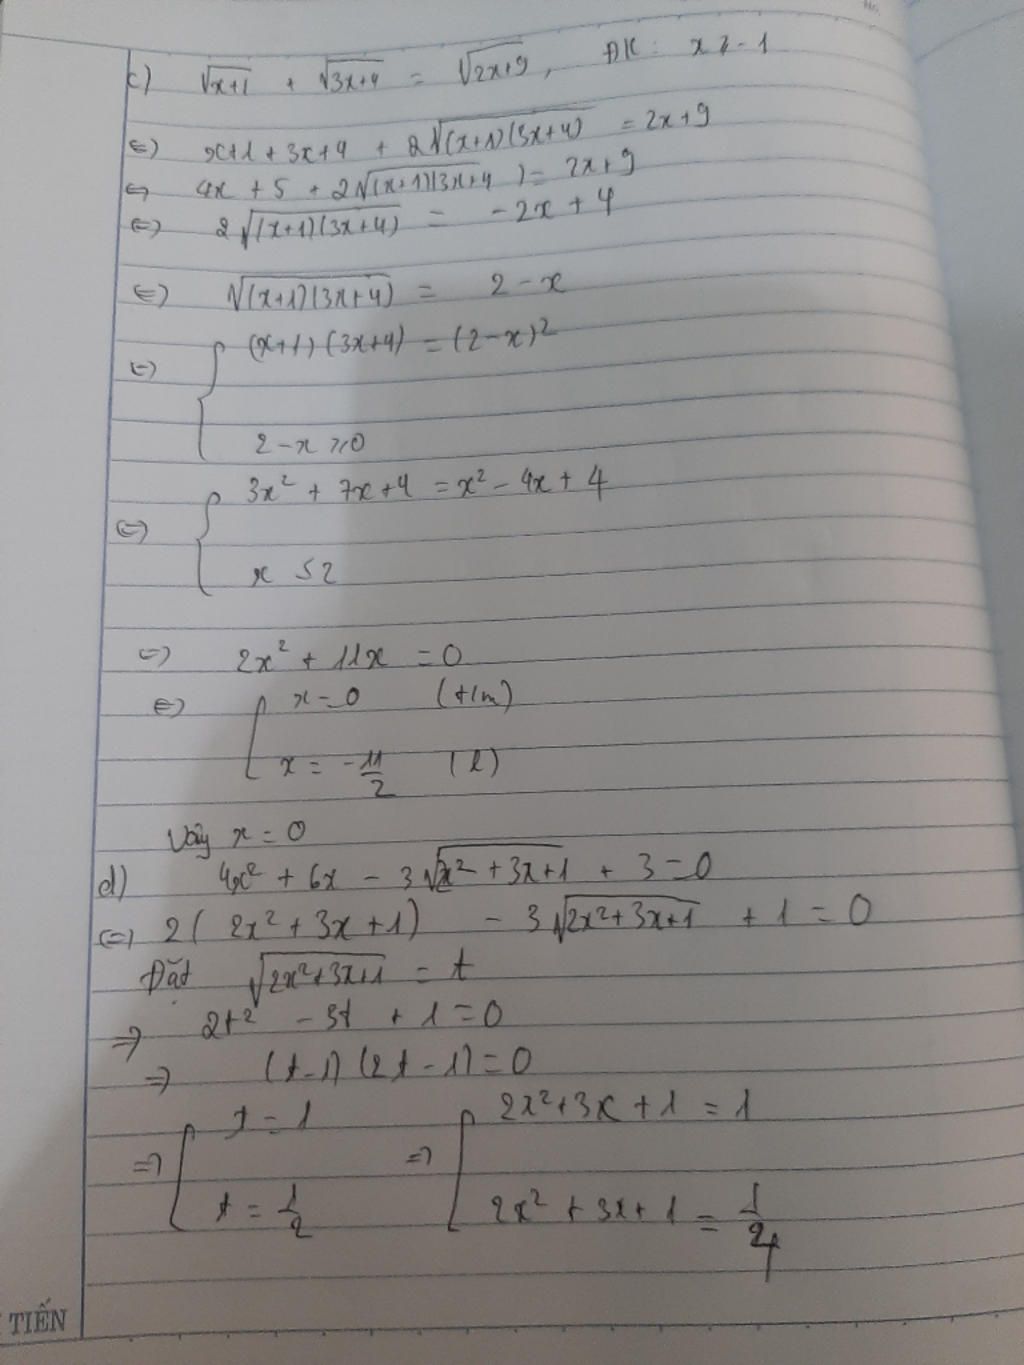 c) √(x+1) + √(3x+4) = √(2x+9), ĐK: x ≥ -1
⇔ x+1 + 3x+4 + 2√((x+1)(3x+4)) = 2x+9
⇔ 4x + 5 + 2√((x+1)(3x+4)) = 2x+9
⇔ 2√((x+1)(3x+4)) = -2x + 4
⇔ √((x+1)(3x+4)) = 2 - x
⇔ { (x+1)(3x+4) = (2-x)²
2 - x ≥ 0
⇔ { 3x² + 7x + 4 = x² - 4x + 4
x ≤ 2
⇔ 2x² + 11x = 0
⇔ [ x = 0 (t/m)
x = -11/2 (l)
Vậy x = 0
d) 4x² + 6x - 3√(x² + 3x+1) + 3 = 0
⇔ 2(2x² + 3x + 1) - 3√(2x²+3x+1) + 1 = 0
Đặt √(2x²+3x+1) = t
⇒ 2t² - 3t + 1 = 0
⇒ (t-1)(2t-1) = 0
⇒ [ t = 1 ⇒ [ 2x²+3x+1 = 1
t = 1/2 2x² + 3x+1 = 1/4
TIẾN